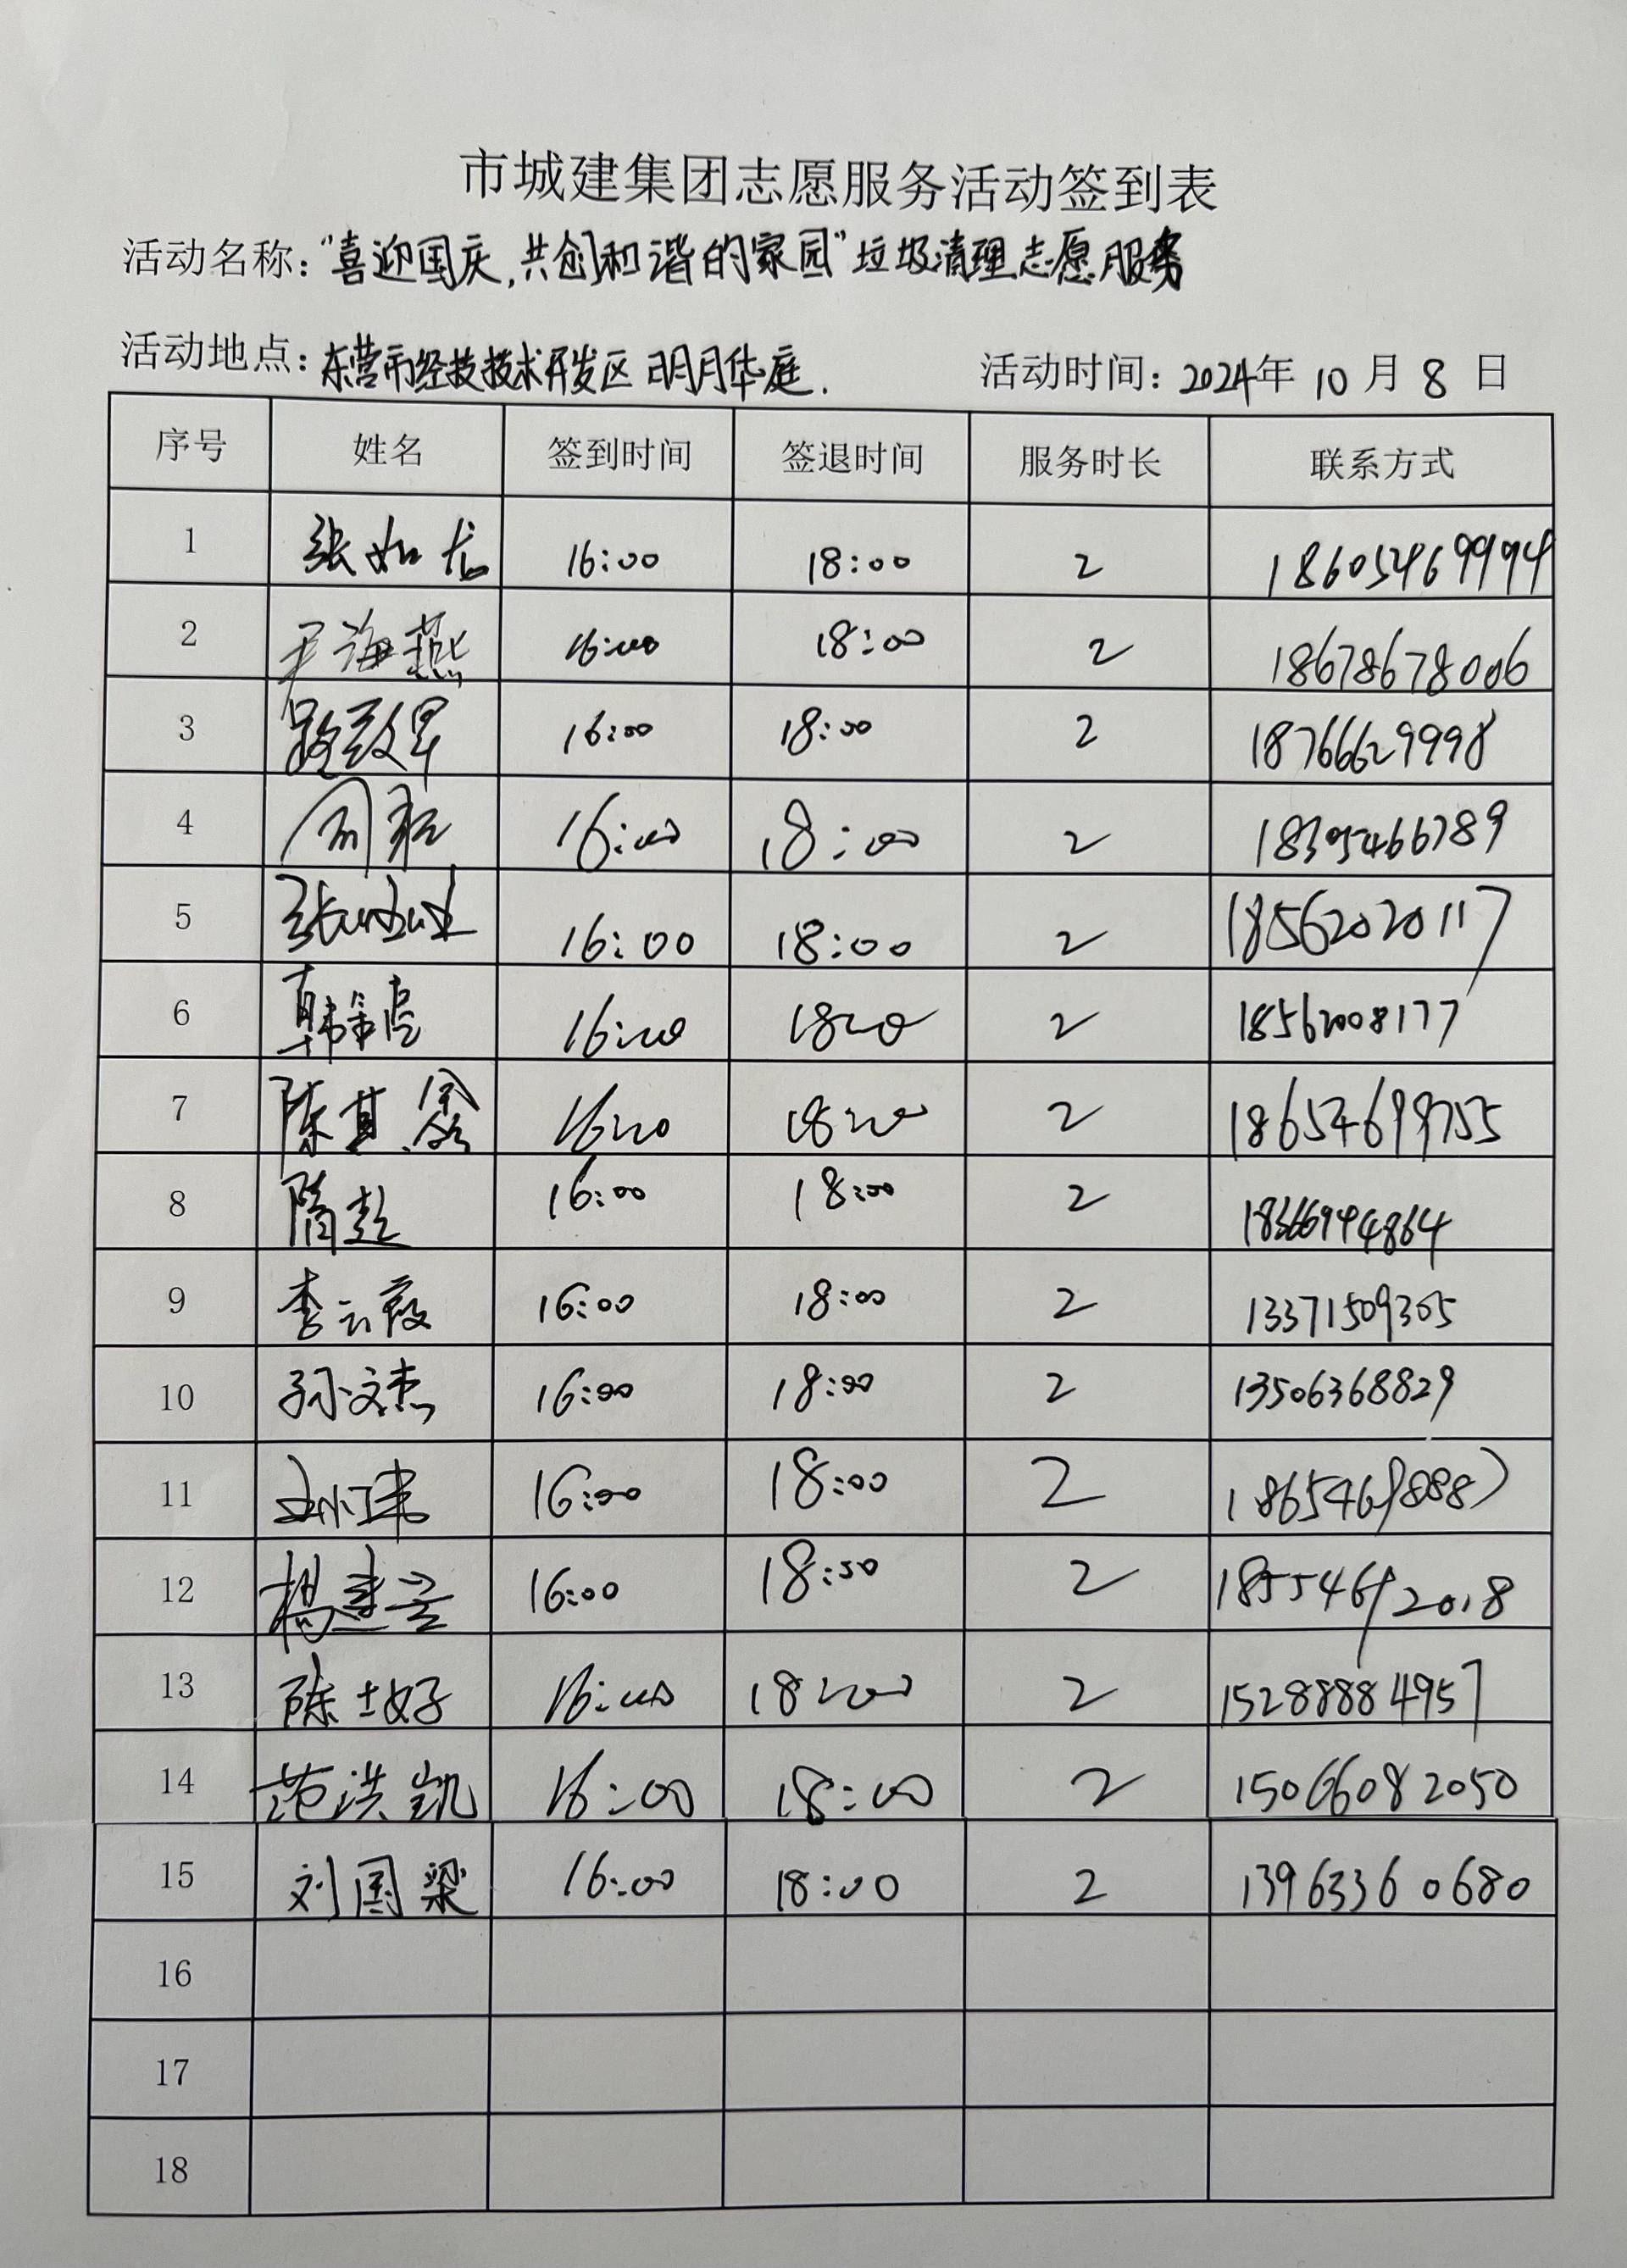 市城建集团志愿服务活动签到表
活动名称:"喜迎国庆,共创和谐的家园"垃圾清理志愿服务
活动地点:东营市经技技术开发区明月华庭. 活动时间:2024年 10 月 8 日
序号 姓名 签到时间 签退时间 服务时长 联系方式
1 张如龙 16:00 18:00 2 18605469994
2 海燕 16:00 18:00 2 18678678006
3 16:00 18:00 2 18766629998
4 周 16:00 18:00 2 18305466789
5 张 16:00 18:00 2 18562020117
6 韩 16:00 18:00 2 18562008177
7 陈其鑫 16:00 18:00 2 18654699755
8 隋 16:00 18:00 2 18366944864
9 李云霞 16:00 18:00 2 13371509305
10 孙文杰 16:00 18:00 2 13506368829
11 16:00 18:00 2
12 杨建 16:00 18:00 2 18554692018
13 陈士好 16:00 18:00 2 15288884957
14 范洪凯 16:00 18:00 2 15066082050
15 刘国梁 16:00 18:00 2 13963360680
16
17
18